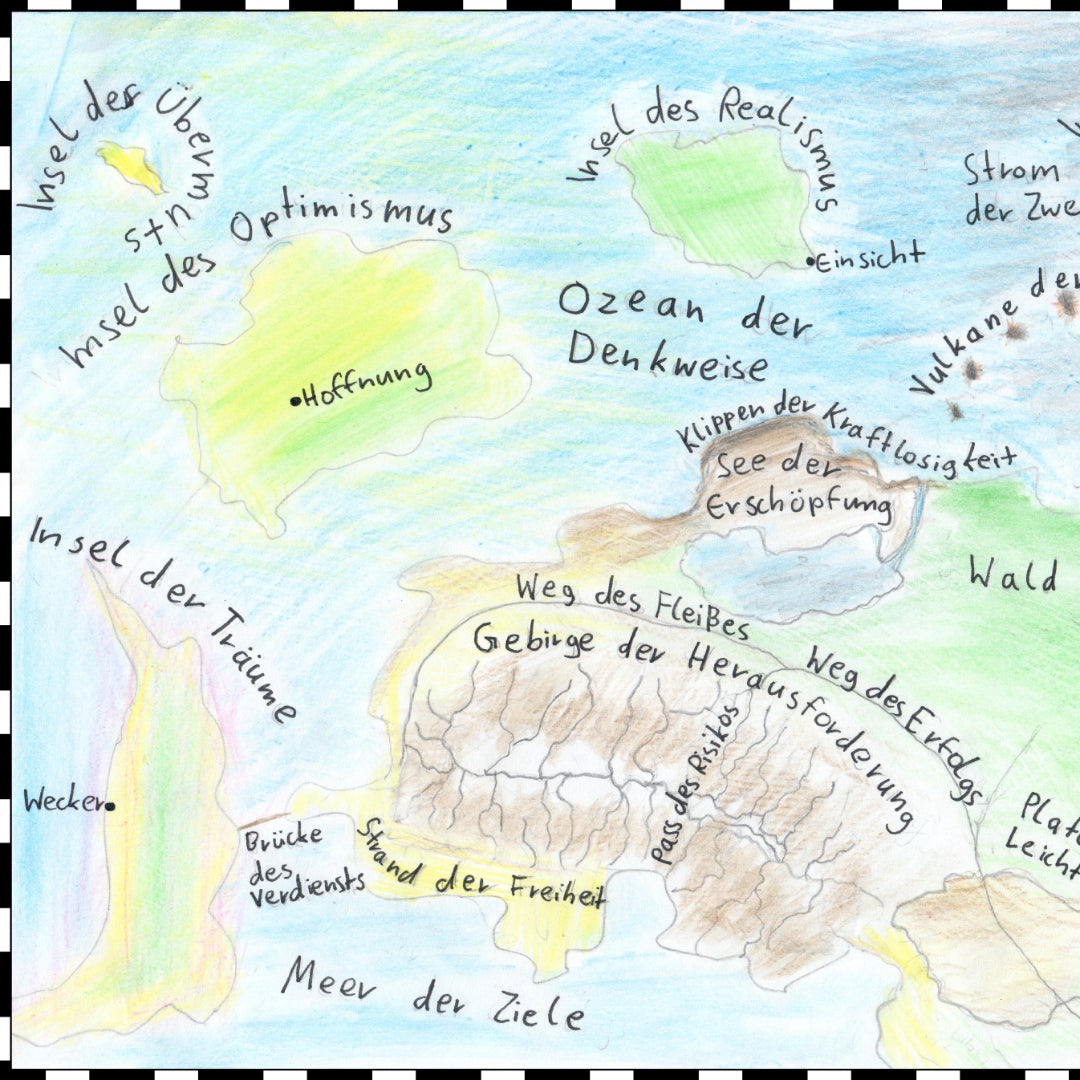 Insel des Übermuts
Insel des Optimismus
Hoffnung
Insel des Realismus
Einsicht
Strom
der Zwe
Ozean der
Denkweise
Vulkane der
Klippen der Kraftlosigkeit
See der
Erschöpfung
Wald
Insel der Träume
Wecker
Weg des Fleißes
Gebirge der Herausforderung
Weg des Erfolgs
Pass des Risikos
Plate
Leicht
Brücke
des
Verdiensts
Strand der Freiheit
Meer der Ziele